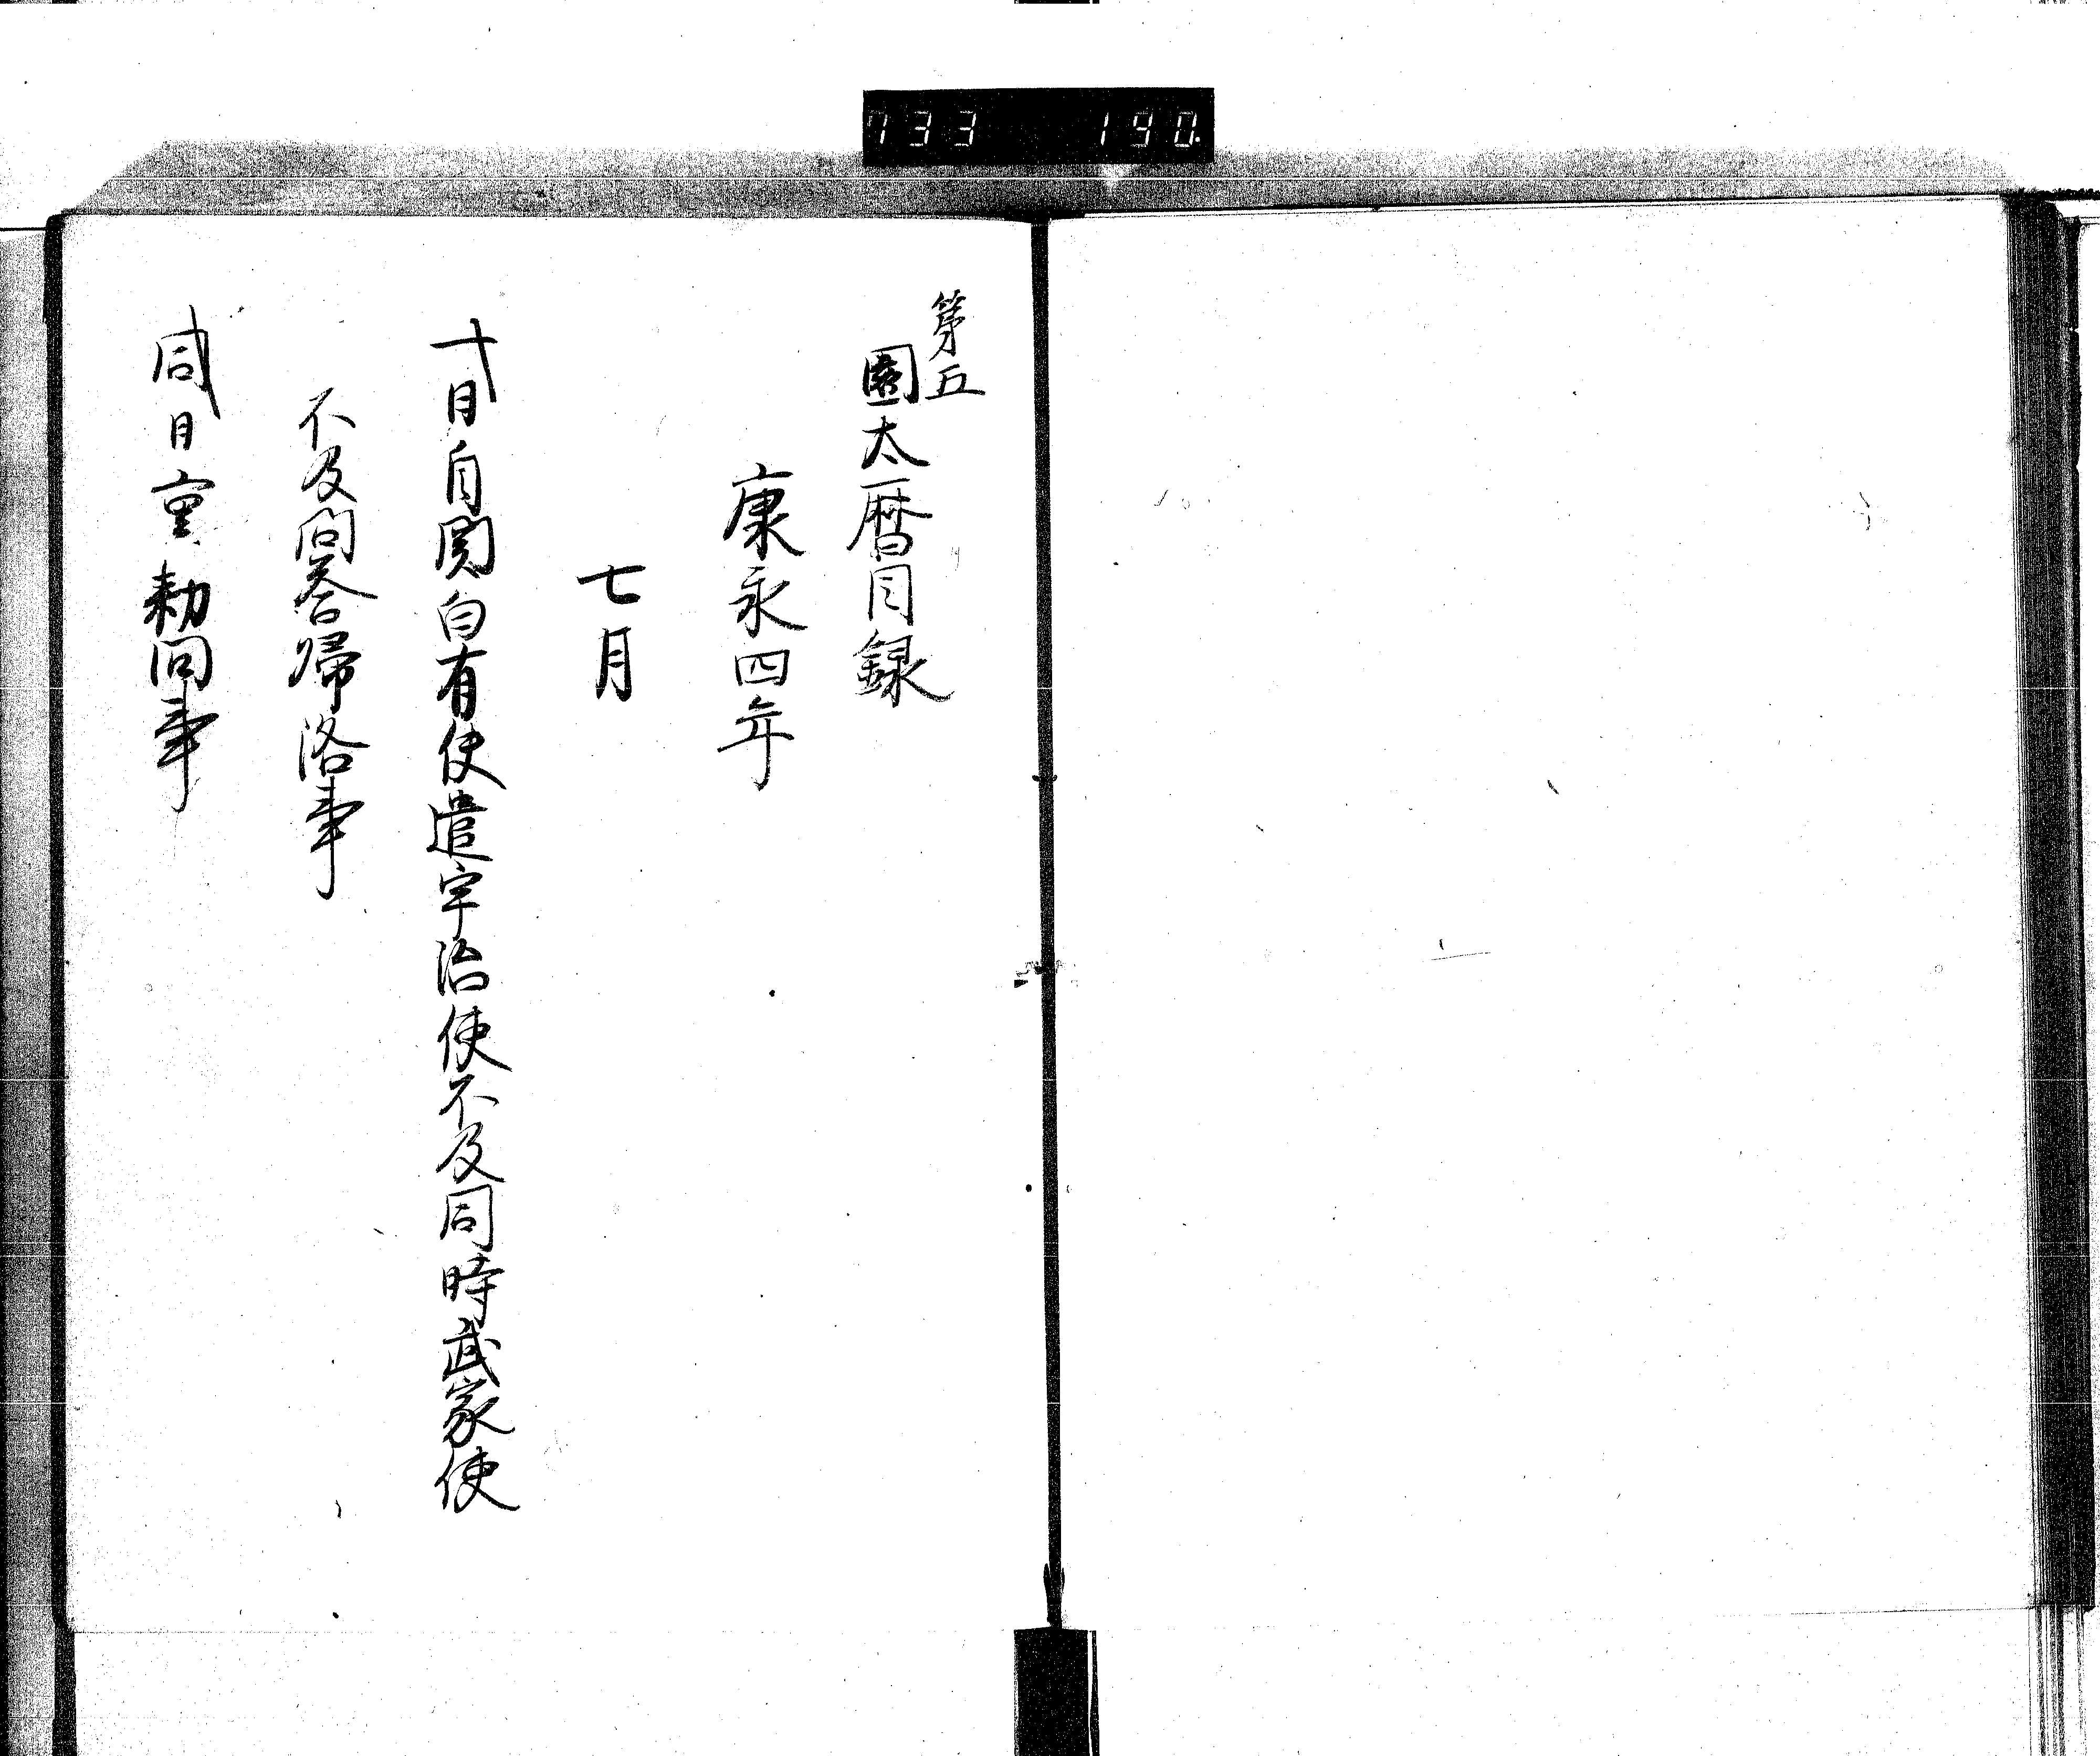 733 190
第五
園太暦目録
康永四年
七月
十日自関白有使遣宇治使不及同時武家使
不及問答帰洛事
同日重勅問事